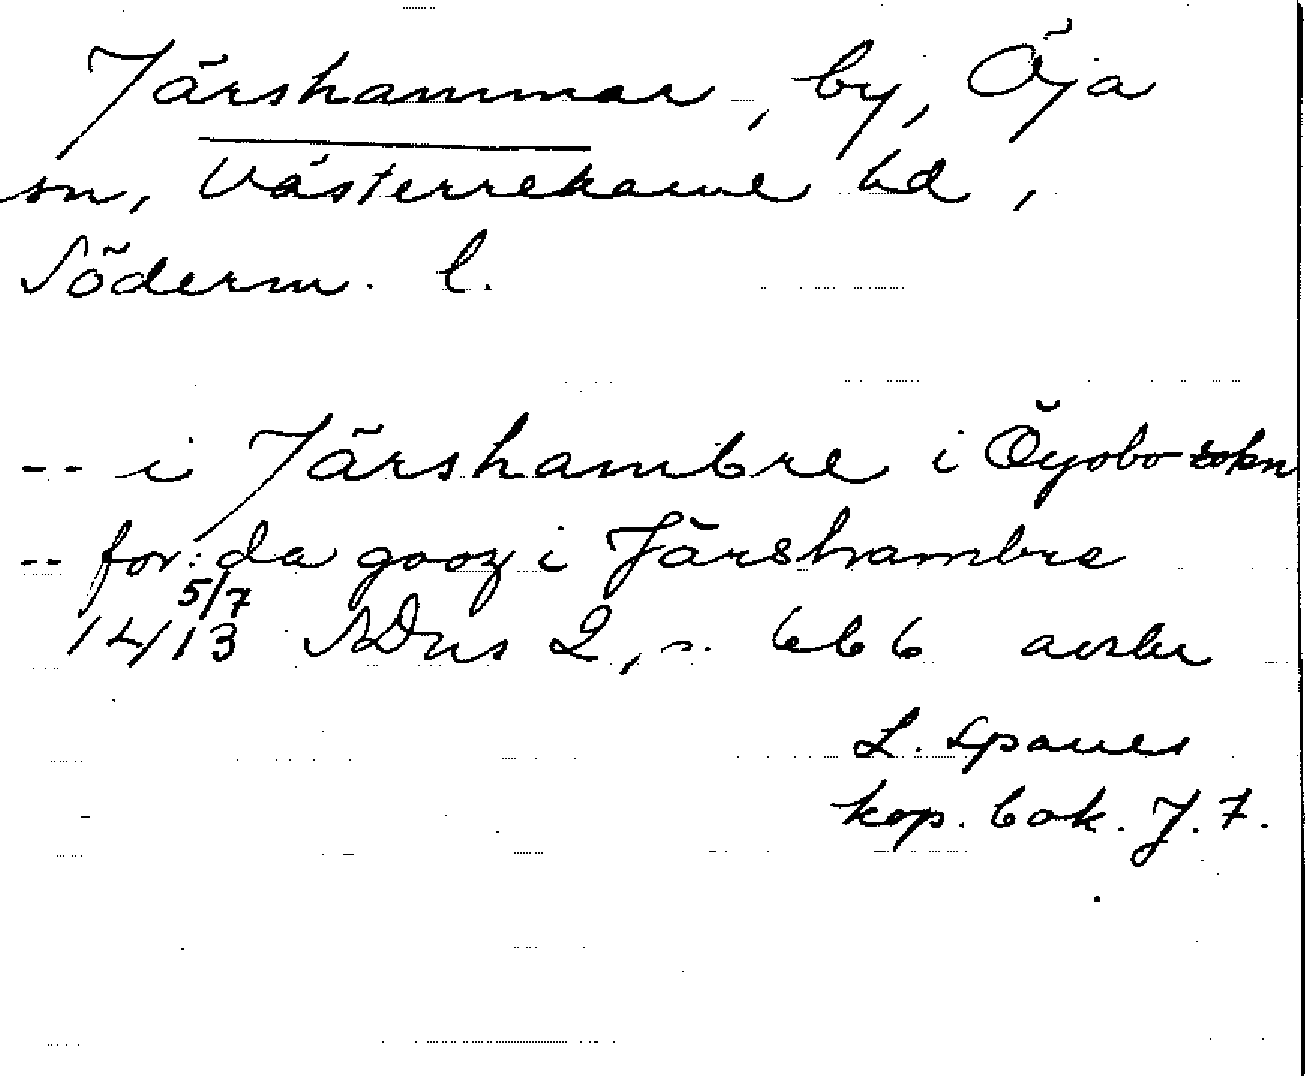 Järshammar, by, Öja
sn, Västerrekarne hd,
Söderm. l.
-- i Järshambre i Öyobo sokn
-- for:da gooz i Järshambre
5/7
1413 SDns 2, s. 666 avskr
L. Sparres
kop. bok. J. 7.